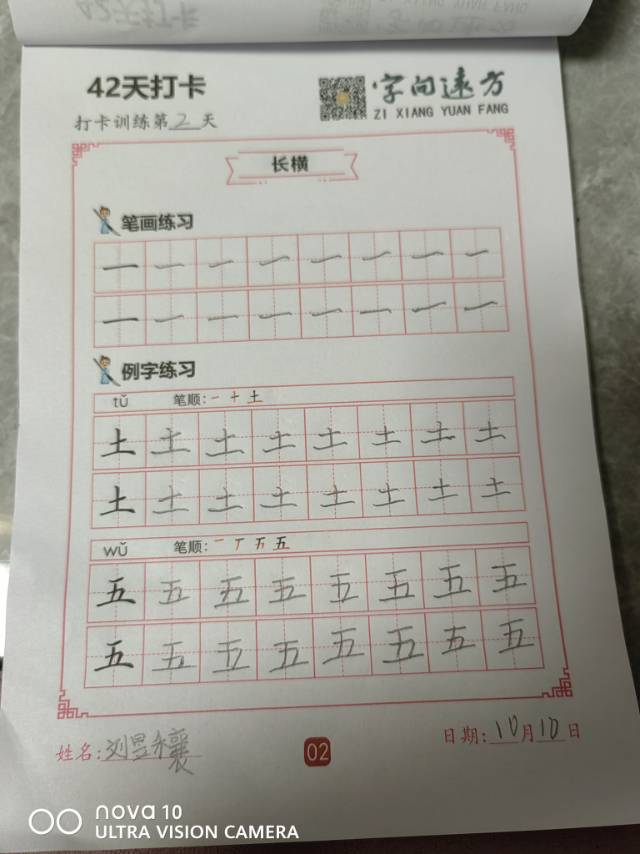 42天打卡
字向远方
ZI XIANG YUAN FANG
打卡训练第2天
长横
笔画练习
一 一 一 一 一 一 一 一
一 一 一 一 一 一 一 一
例字练习
tǔ 笔顺: 一 十 土
土 土 土 土 土 土 土 土
土 土 土 土 土 土 土 土
wǔ 笔顺: 一 丅 五 五
五 五 五 五 五 五 五 五
五 五 五 五 五 五 五 五
姓名:刘昱穰
02
日期:10月10日
nova 10
ULTRA VISION CAMERA